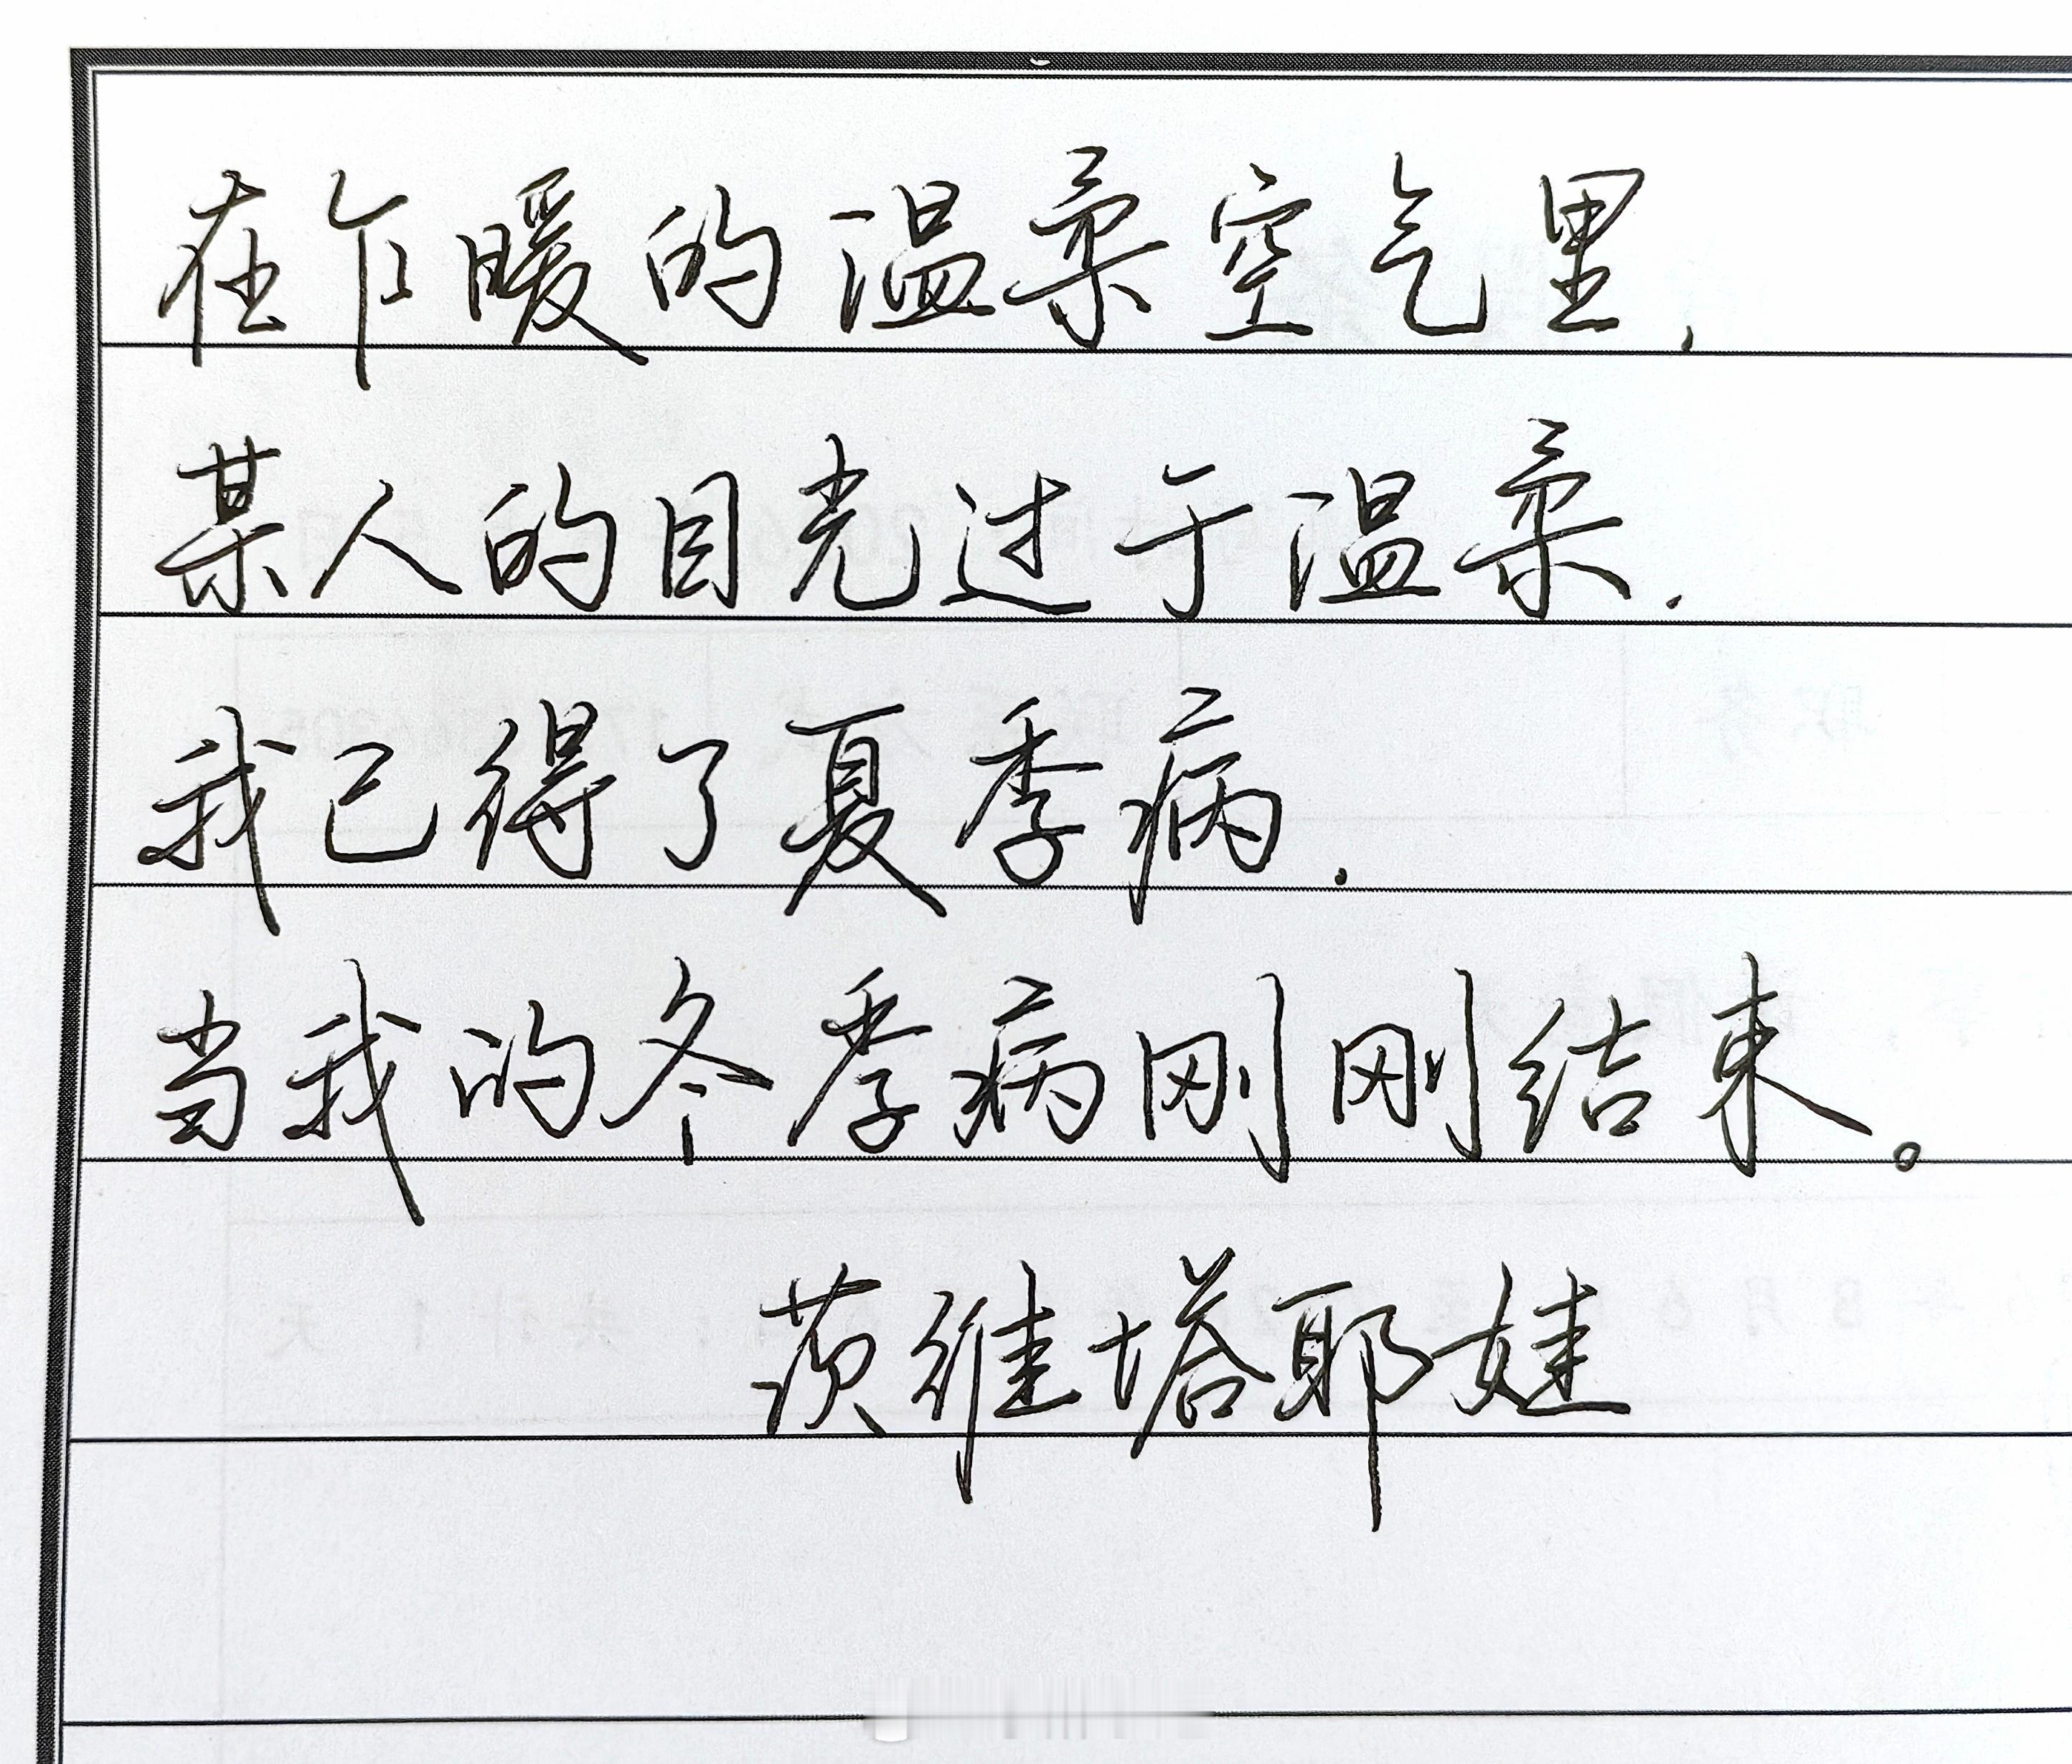 在乍暖的温柔空气里,
某人的目光过于温柔.
我已得了夏季病.
当我的冬季病刚刚结束。
茨维塔耶娃